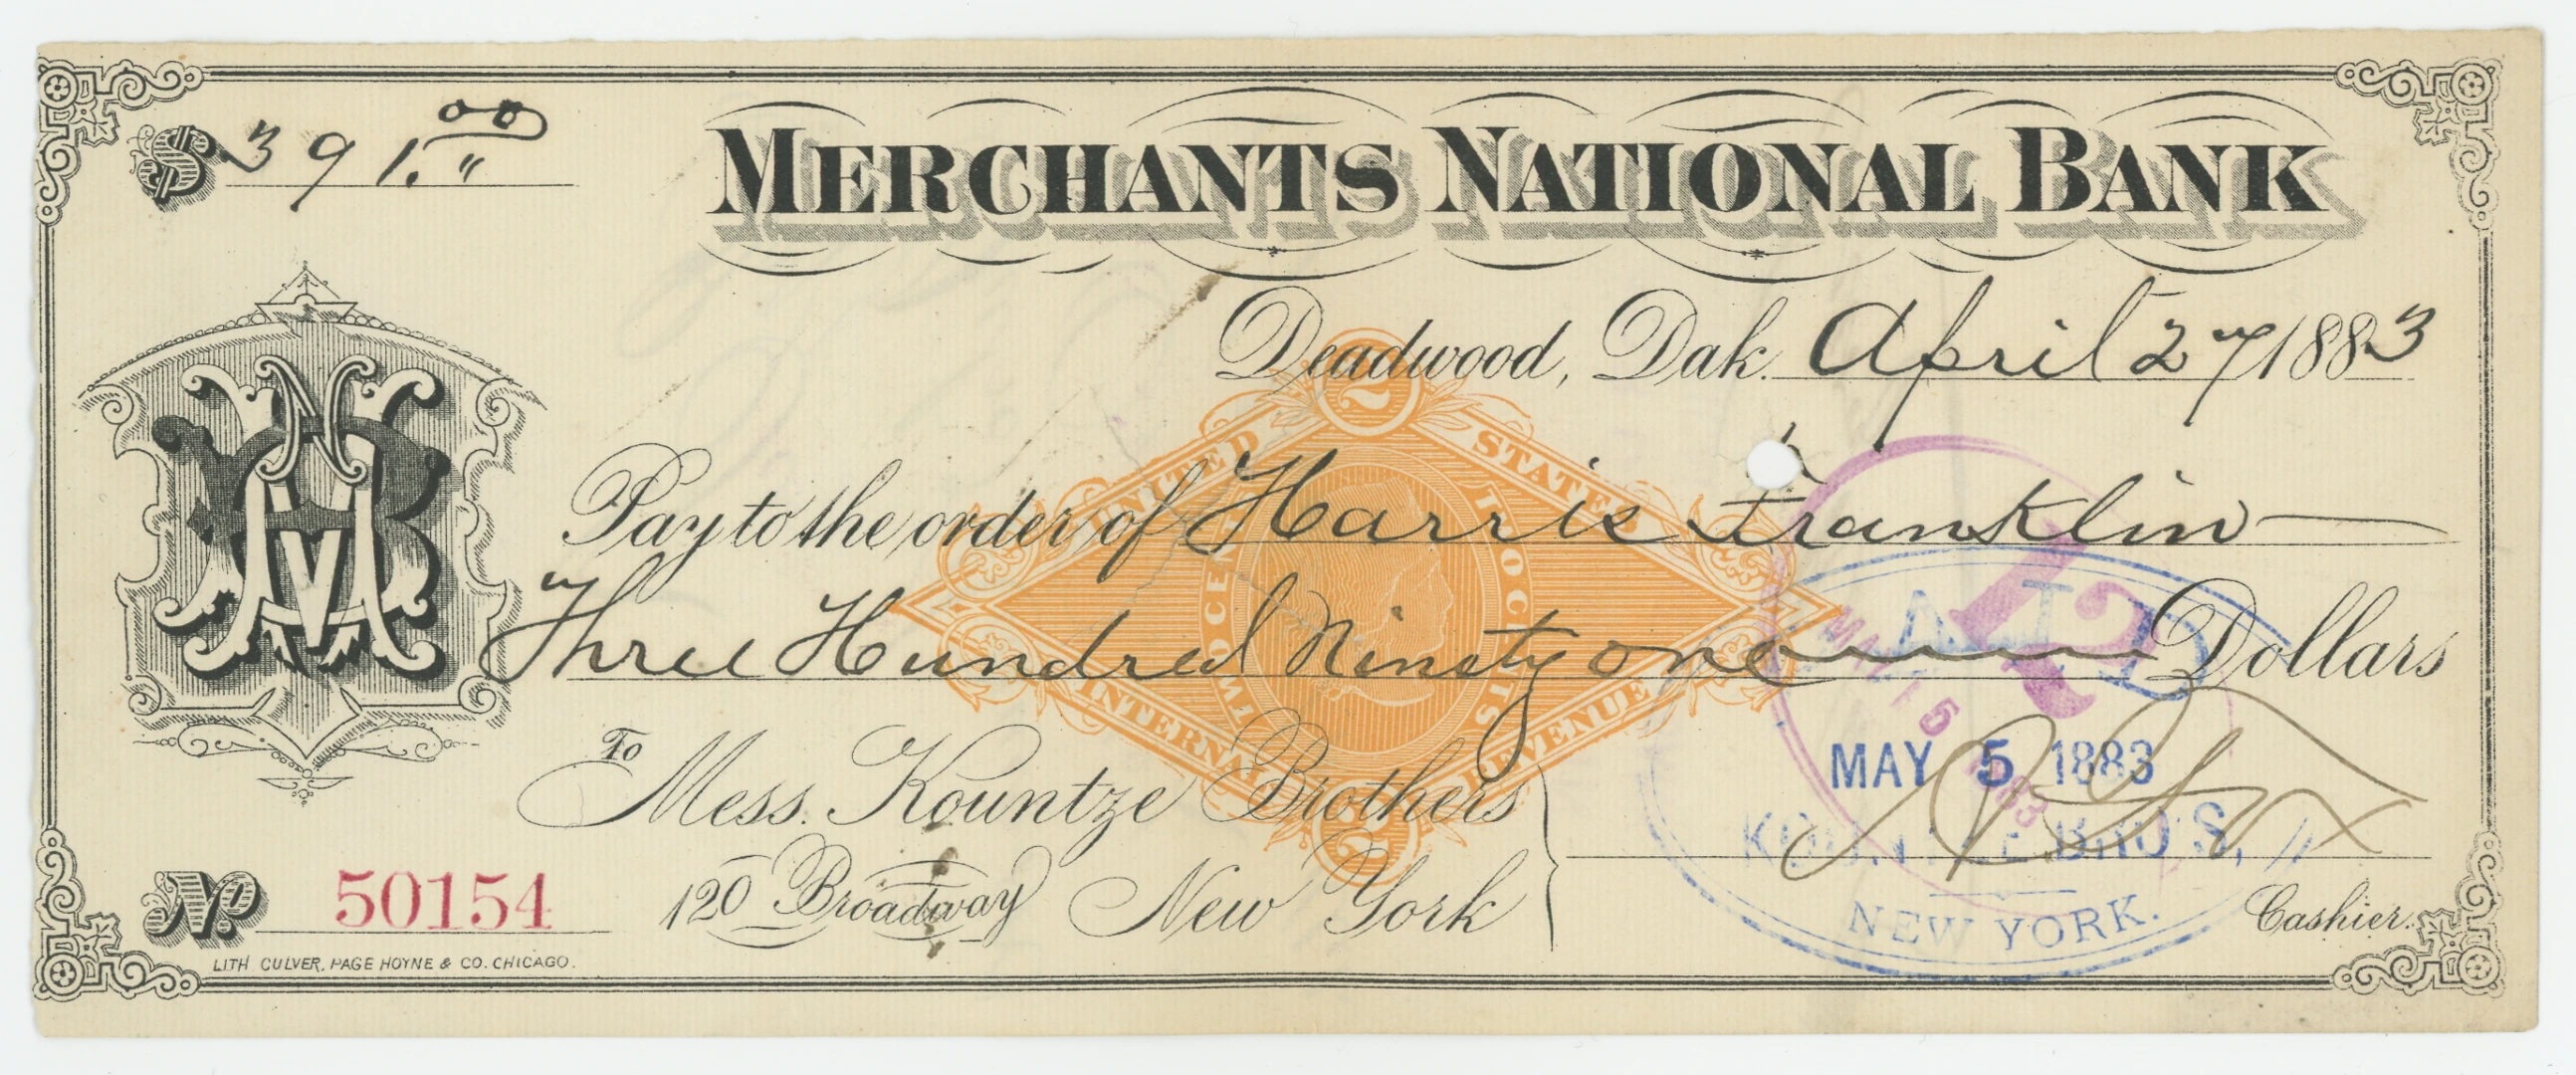 $ 391.00 "
MERCHANTS NATIONAL BANK
Deadwood, Dak. April 27 1883
MNB
Pay to the order of Harris Franklin
Three Hundred Ninety one Dollars
UNITED STATES
INTERNAL REVENUE
TWO CENTS
TWO CENTS
2
2
To Mess. Kountze Brothers
120 Broadway New York
PAID
MAY 5 1883
KOUNTZE BRO'S,
NEW YORK.
MAY 5 1883
Cashier.
No. 50154
LITH CULVER, PAGE HOYNE & CO. CHICAGO.